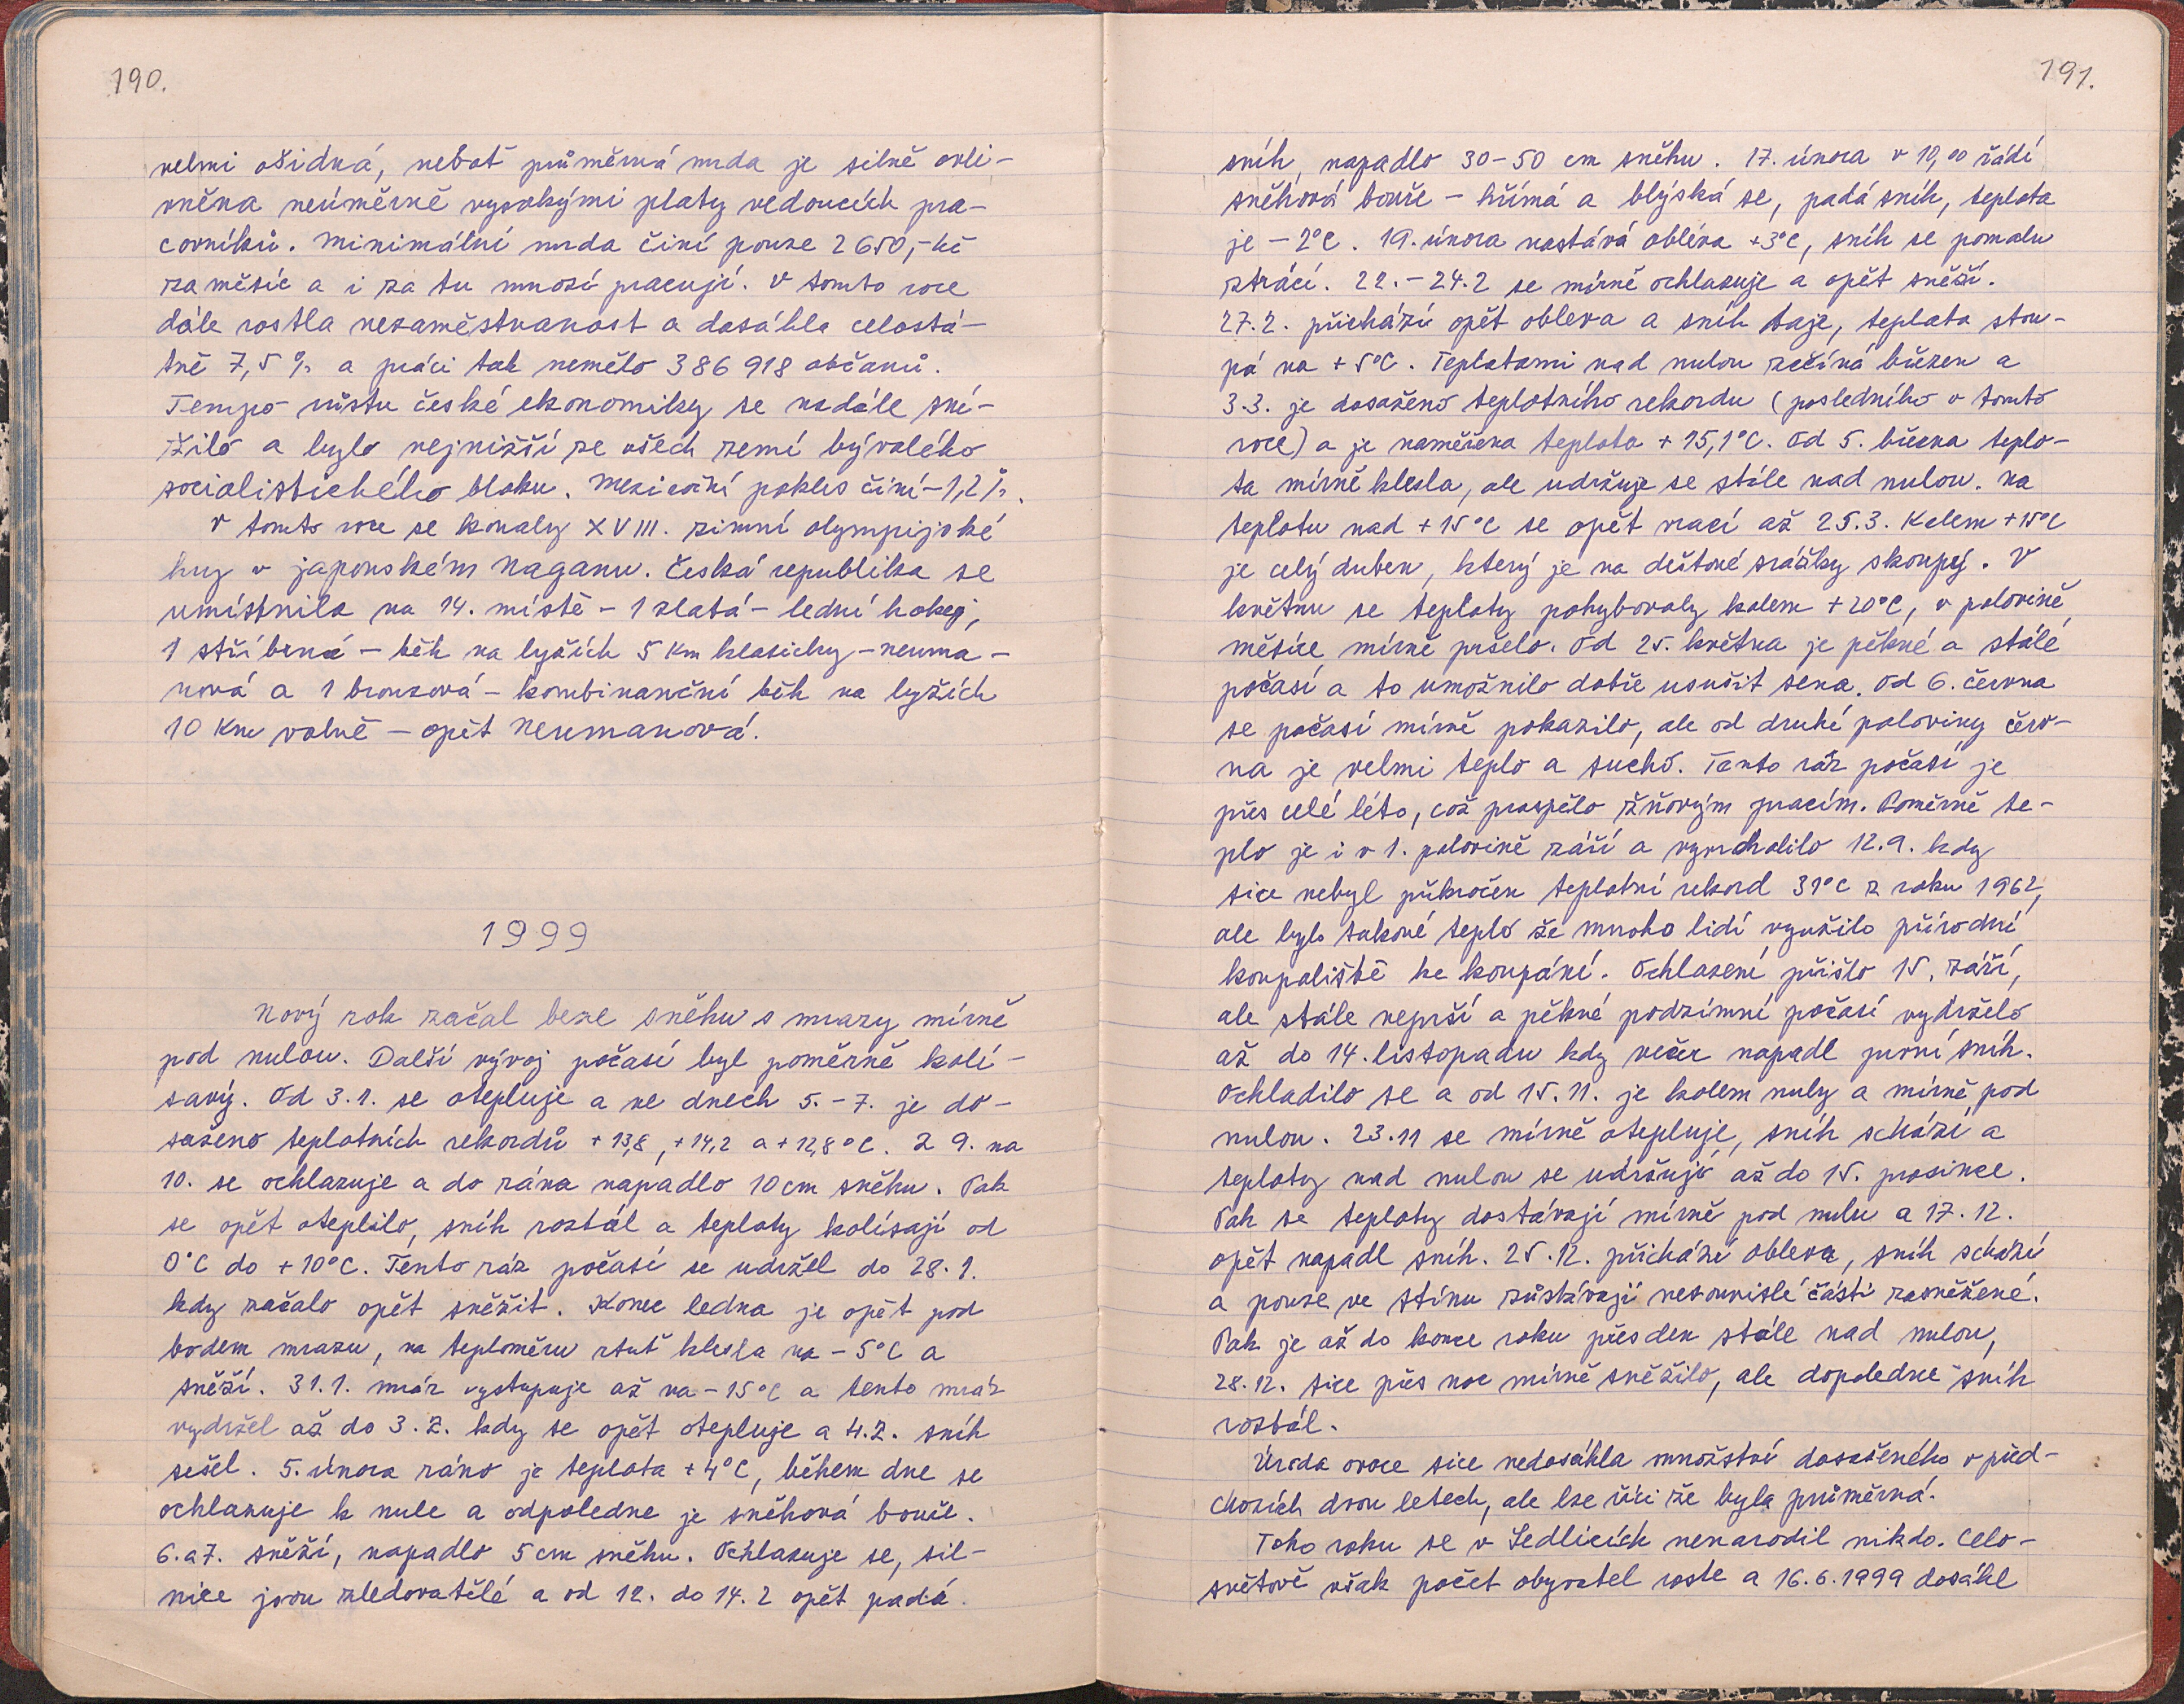 190.
velmi ošidná, neboť průměrná mzda je silně ovli-
vněna neúměrně vysokými platy vedoucích pra-
covníků. Minimální mzda činí pouze 2650,- kč
za měsíc a i za tu mnozí pracují. V tomto roce
dále rostla nezaměstnanost a dosáhla celostá-
tně 7,5 % a práci tak nemělo 386 918 občanů.
Tempo růstu české ekonomiky se nadále sní-
žilo a bylo nejnižší ze všech zemí bývalého
socialistického bloku. Meziroční pokles činí -1,2 %.
V tomto roce se konaly XVIII. zimní olympijské
hry v japonském Naganu. Česká republika se
umístnila na 14. místě - 1 zlatá - lední hokej,
1 stříbrná - běh na lyžích 5 Km klasicky - neuma-
nová a 1 bronzová - kombinanční běh na lyžích
10 Km volně - opět Neumanová.
1999
Nový rok začal beze sněhu s mrazy mírně
pod nulou. Další vývoj počasí byl poměrně kolí-
savý. Od 3.1. se otepluje a ve dnech 5.-7. je do-
saženo teplotních rekordů +13,8, +14,2 a +12,8°C. Z 9. na
10. se ochlazuje a do rána napadlo 10 cm sněhu. Pak
se opět oteplilo, sníh roztál a teploty kolísají od
0°C do +10°C. Tento ráz počasí se udržel do 28.1.
kdy začalo opět sněžit. Konec ledna je opět pod
bodem mrazu, na teploměru rtuť klesla na -5°C a
sněží. 31.1. mráz vystupuje až na -15°C a tento mráz
vydržel až do 3.2. kdy se opět otepluje a 4.2. sníh
sešel. 5. února ráno je teplota +4°C, během dne se
ochlazuje k nule a odpoledne je sněhová bouře.
6. a 7. sněží, napadlo 5 cm sněhu. Ochlazuje se, sil-
nice jsou zledovatělé a od 12. do 14.2 opět padá
191.
sníh, napadlo 30-50 cm sněhu. 17. února v 10,00 řádí
sněhová bouře - hřímá a blýská se, padá sníh, teplota
je -2°C. 19. února nastává obleva +3°C, sníh se pomalu
ztrácí. 22.-24.2 se mírně ochlazuje a opět sněží.
27.2. přichází opět obleva a sníh taje, teplota stou-
pá na +5°C. Teplotami nad nulou začíná březen a
3.3. je dosaženo teplotního rekordu (posledního v tomto
roce) a je naměřena teplota +15,1°C. Od 5. března teplo-
ta mírně klesla, ale udržuje se stále nad nulou. Na
teplotu nad +15°C se opět vrací až 25.3. Kolem +15°C
je celý duben, který je na dešťové srážky skoupý. V
květnu se teploty pohybovaly kolem +20°C, v polovině
měsíce mírně pršelo. Od 25. května je pěkné a stálé
počasí a to umožnilo dobře usušit sena. Od 6. června
se počasí mírně pokazilo, ale od druhé poloviny červ-
na je velmi teplo a sucho. Tento ráz počasí je
přes celé léto, což prospělo žňovým pracím. Poměrně te-
plo je i v 1. polovině září a vyvrcholilo 12.9. kdy
sice nebyl překročen teplotní rekord 31°C z roku 1962,
ale bylo takové teplo že mnoho lidí využilo přírodní
koupaliště ke koupání. Ochlazení přišlo 15. září,
ale stále neprší a pěkné podzimní počasí vydrželo
až do 14. listopadu kdy večer napadl první sníh.
Ochladilo se a od 15.11. je kolem nuly a mírně pod
nulou. 23.11 se mírně otepluje, sníh schází a
teploty nad nulou se udržují až do 15. prosince.
Pak se teploty dostávají mírně pod nulu a 17.12.
opět napadl sníh. 25.12. přichází obleva, sníh schází
a pouze ve stínu zůstávají nesouvislé části zasněžené.
Pak je až do konce roku přes den stále nad nulou,
28.12. sice přes noc mírně sněžilo, ale dopoledne sníh
roztál.
Úroda ovoce sice nedosáhla množství dosaženého v před-
chozích dvou letech, ale lze říci že byla průměrná.
Toho roku se v Sedlicích nenarodil nikdo. Celo-
světově však počet obyvatel roste a 16.6.1999 dosáhl